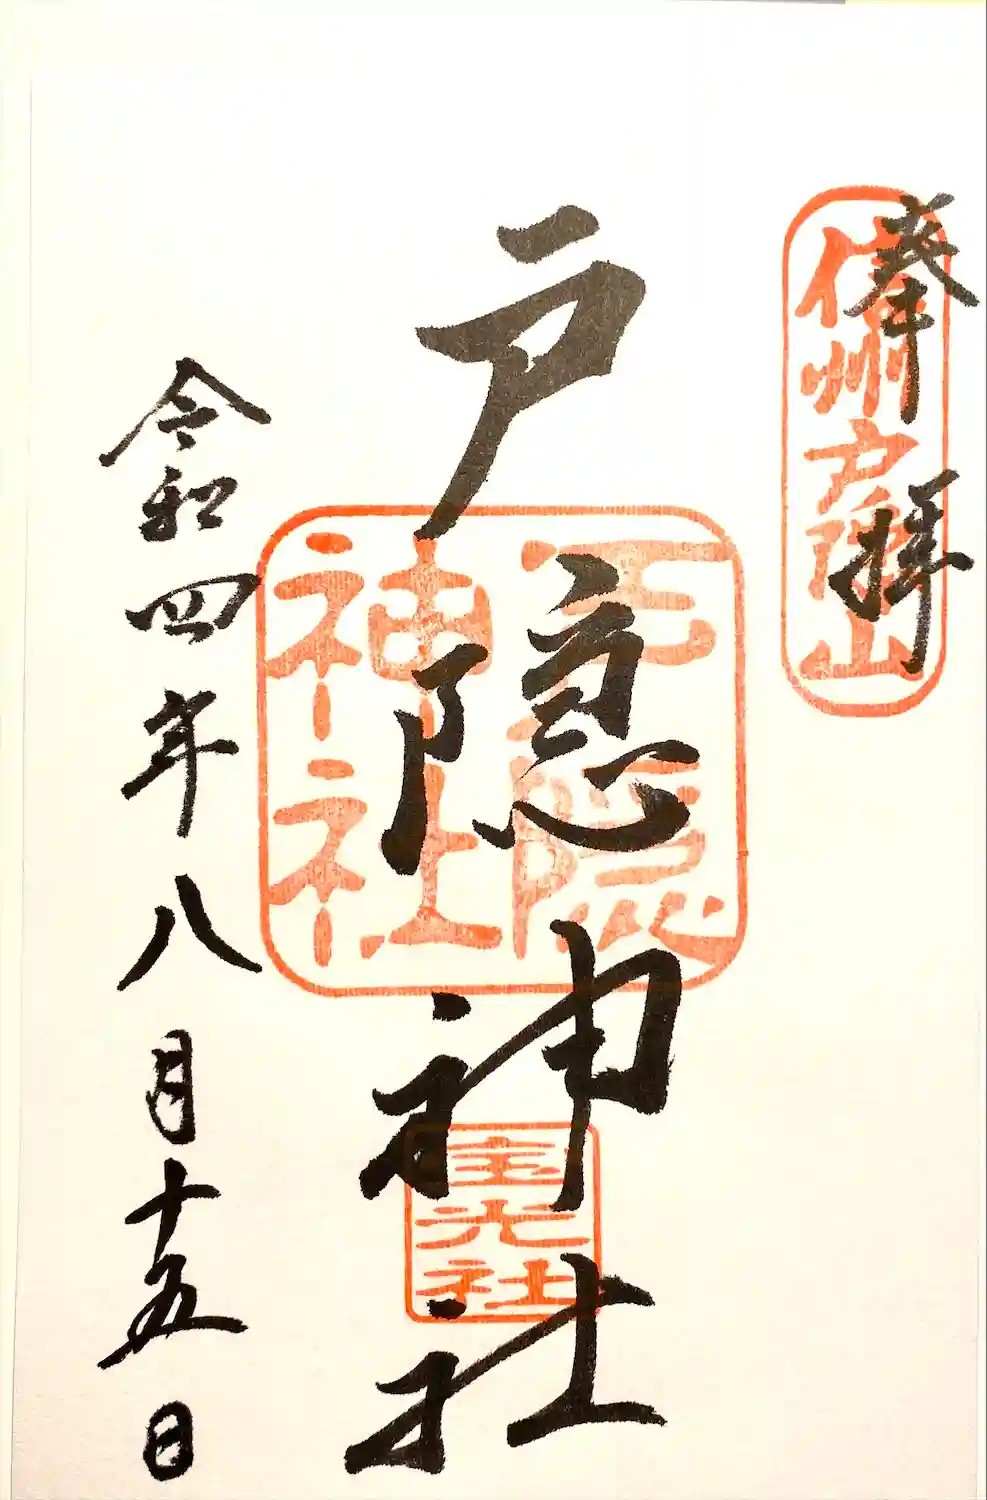 奉拝
信州戸隠山
戸隠神社
戸隠
神社
宝光社
令和四年八月十五日